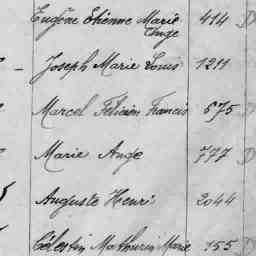 Eugène Etienne Marie 414 D
Ange
Joseph Marie Louis 1211
Marcel Félicien Francis 675 D
Marie Ange 777 D
Auguste Henri 2044
Célestin Mathurin Marie 155 D